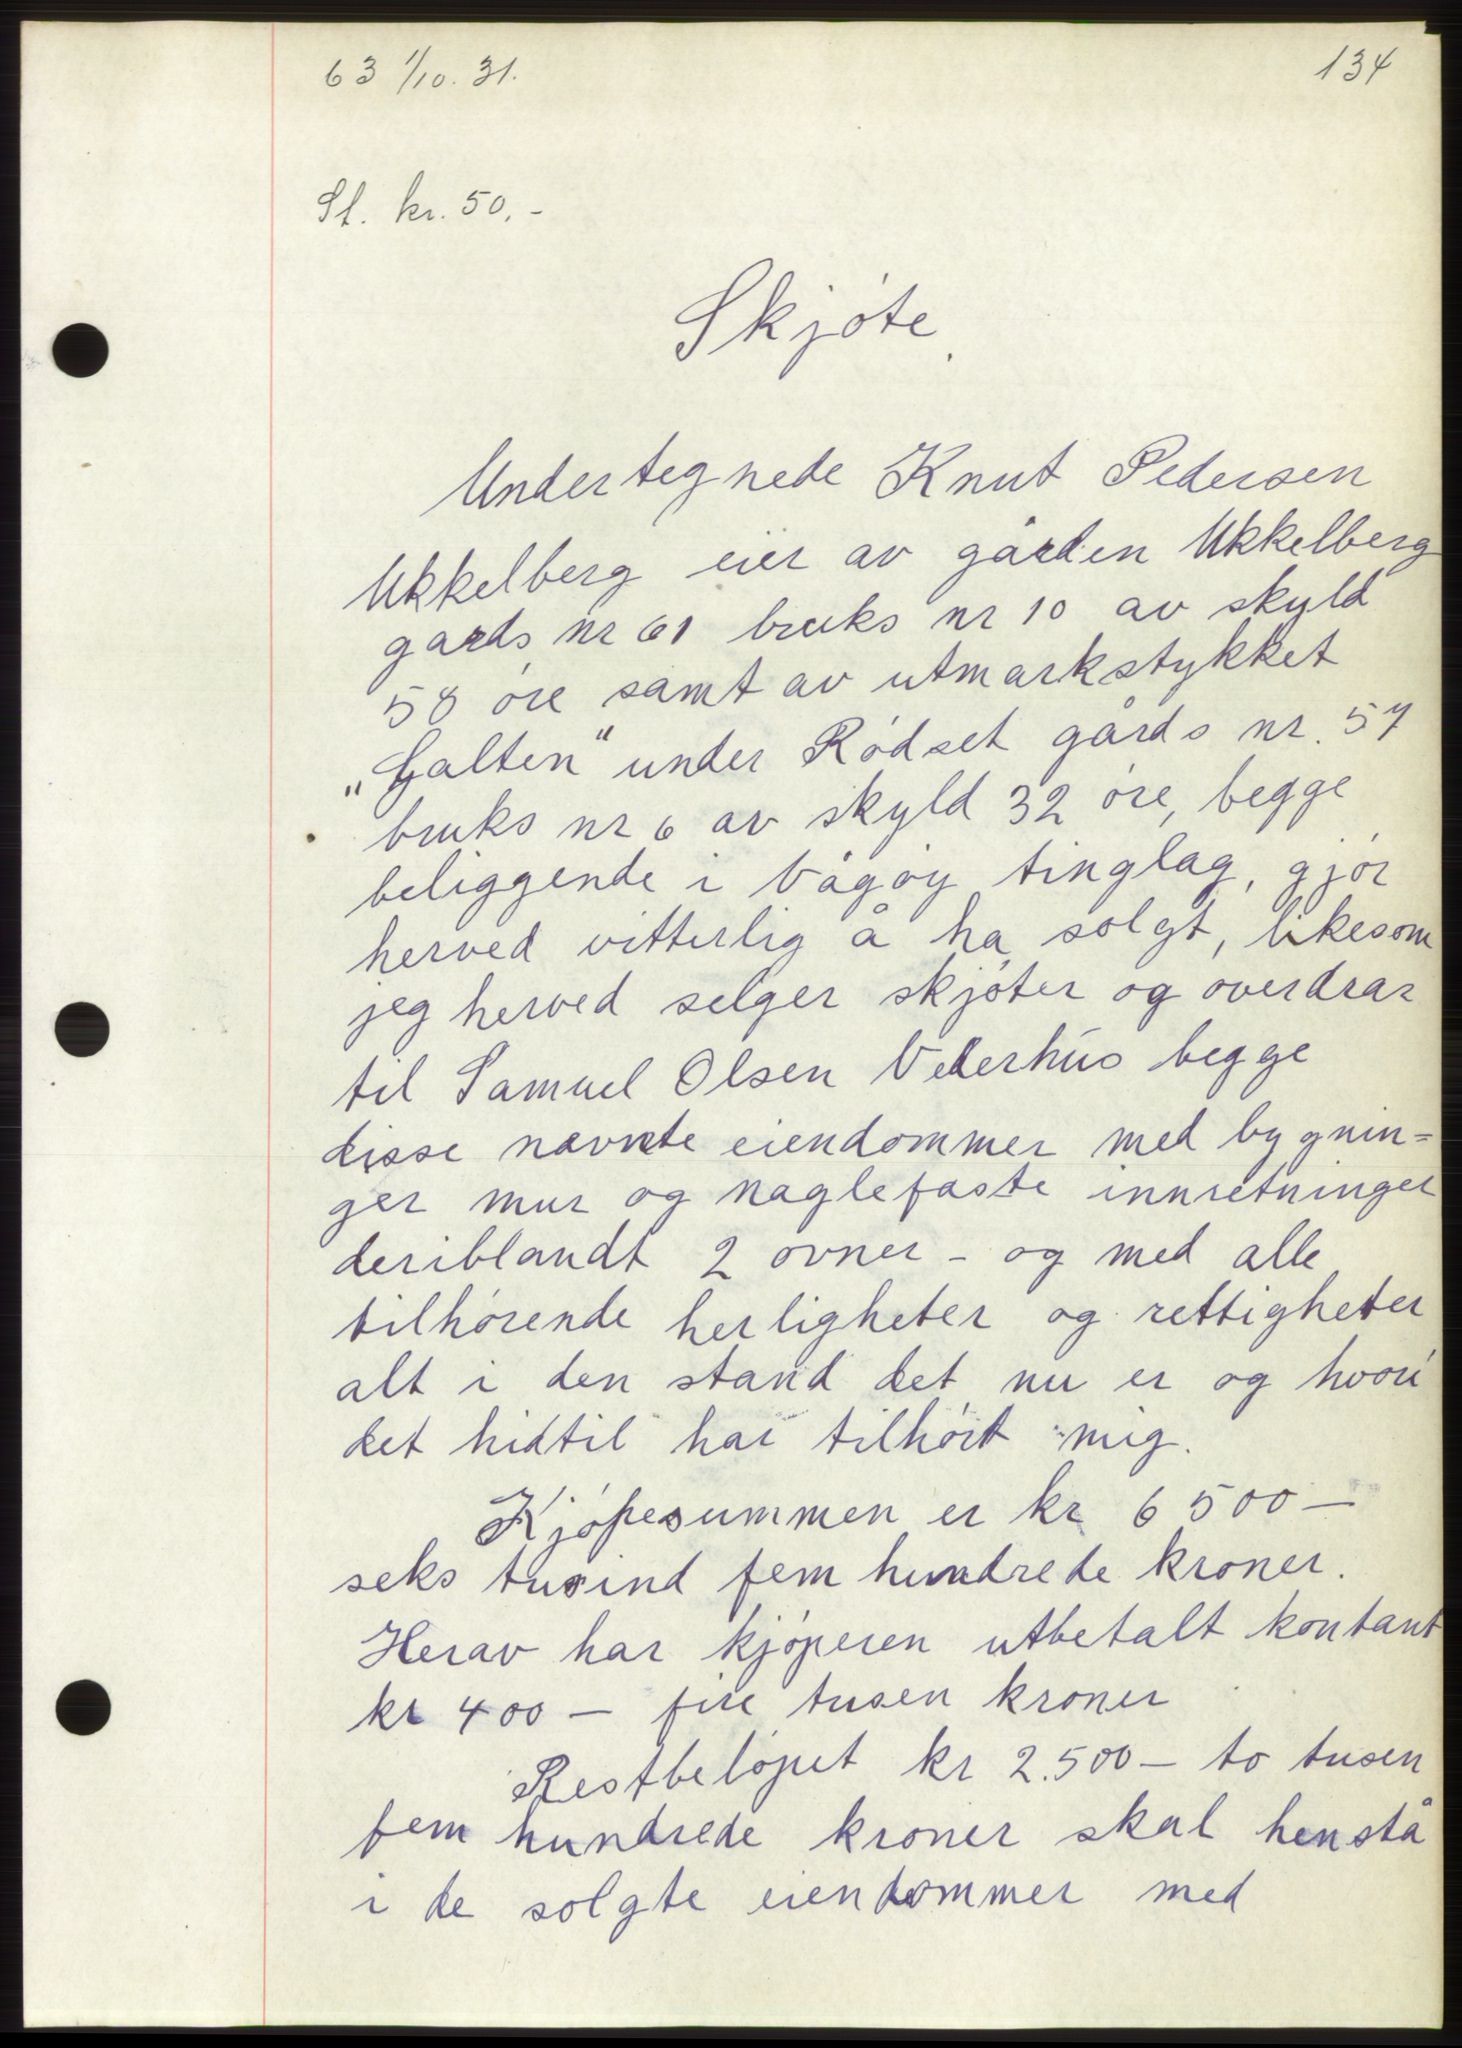 63 1/10. 31.
134
St. kr. 50.-
Skjóte.
Undertegnede Knut Pedersen
Ukkelberg eier av gården Ukkelberg
gards nr 61 bruks nr 10 av skyld
58 óre samt av utmarkstykket
„Galten" under Ródset gårds nr. 57
bruks nr 6 av skyld 32 óre, begge
beliggende i Vågóy tinglag, gjór
herved vitterlig å ha solgt, likesom
jeg herved selger skjóter og overdrar
til Samuel Olsen Vederhus begge
disse nævnte eiendommer med bygnin=
ger mur og naglefaste innretninger
deriblandt 2 ovner - og med alle
tilhórende herligheter og rettigheter
alt i den stand det nu er og hvori
det hidtil har tilhórt mig.
Kjópesummen er kr 6500—
seks tusind fem hundrede kroner.
Herav har kjóperen utbetalt kontant
kr 400 — fire tusen kroner
Restbelópet kr 2.500 — to tusen
fem hundrede kroner skal henstå
i de solgte eiendommer med